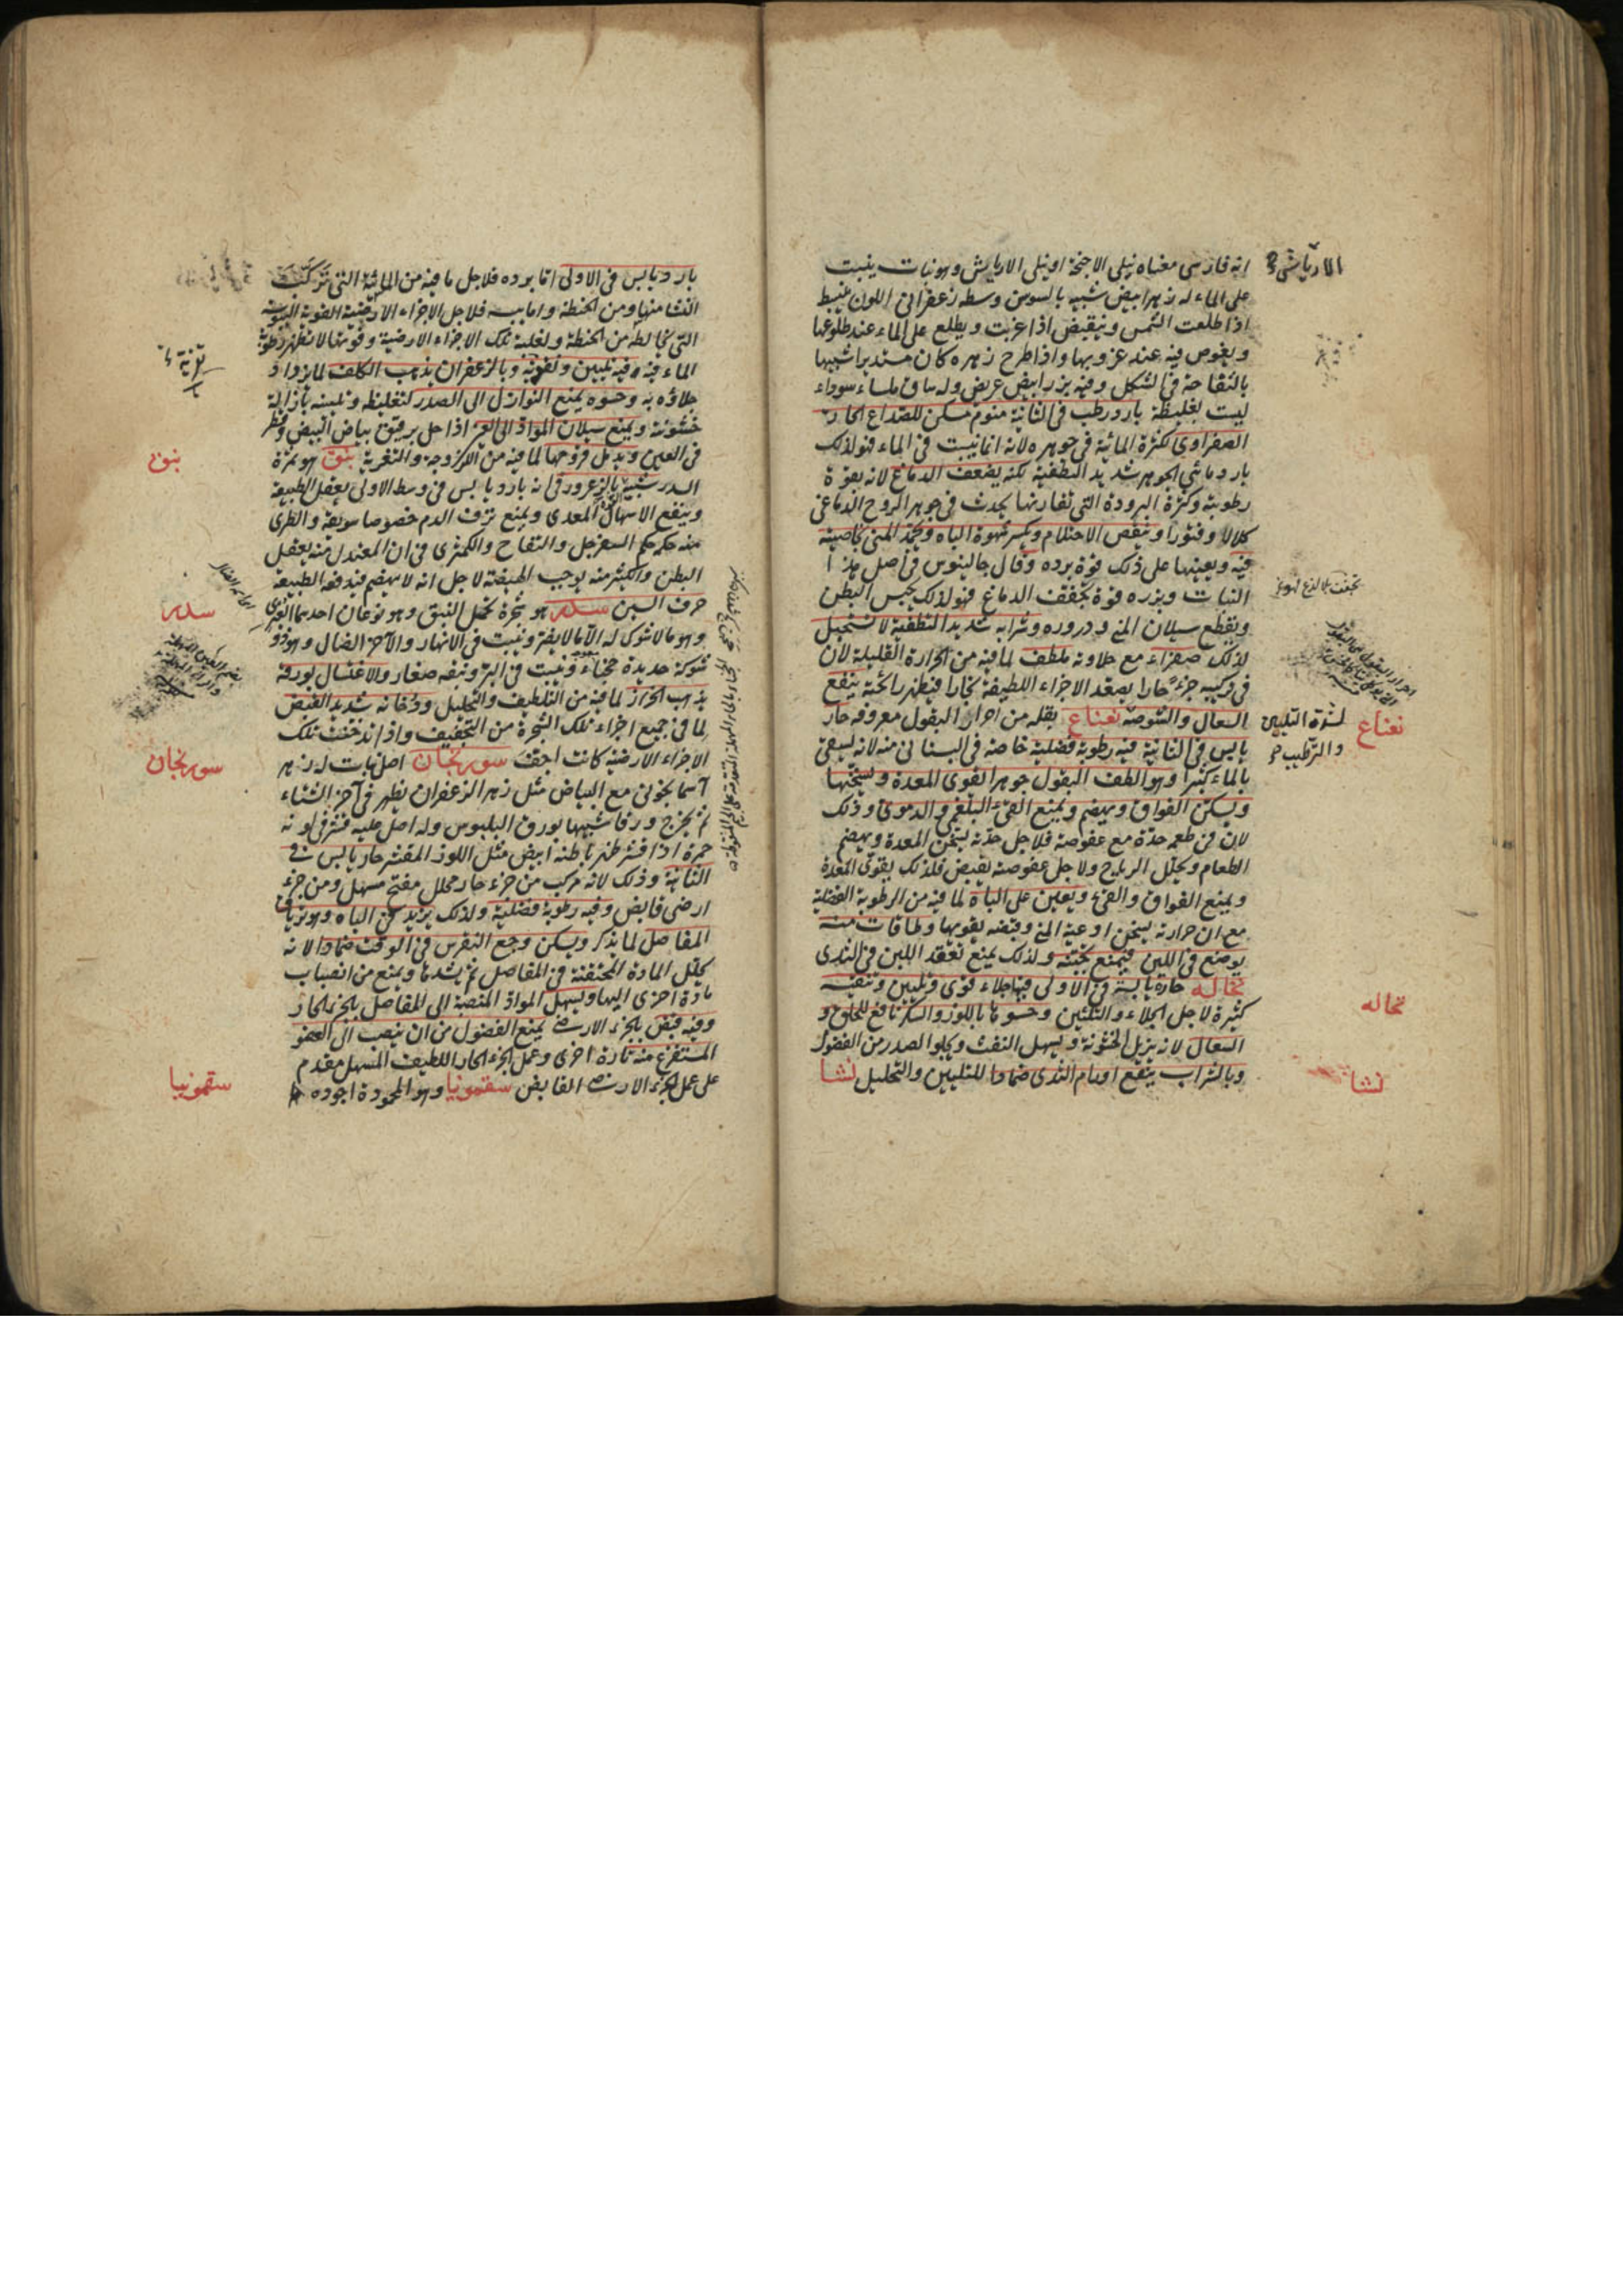 انه فارسى معناه نيلى الاجنحة او نيلى الارياش وهو نبات ينبت
على الماء له زهر ابيض شبيه بالسوسن وسطه زعفرانى اللون ينبسط
اذا طلعت الشمس وينقبض اذا غربت ويطلع على الماء عند طلوعها
ويغوص فيه عند غروبها واذا طرح زهره كان مستديرا شبيها
بالتفاحة فى الشكل وفيه بزر ابيض عريض وله ساق ملساء سوداء
ليست بغليظة بارد رطب فى الثانية منوم مسكن للصداع الحار
الصفراوى لكثرة المائية فى جوهره لانه انما ينبت فى الماء فهو لذلك
بارد مائي الجوهر شديد التطفية لكنه يضعف الدماغ لانه بقوة
رطوبته وكثرة البرودة التى تقارنها يحدث فى جوهر الروح الدماغى
كلالا وفتورا وينقص الاحتلام ويكسر شهوة الباه ويجمد المنى بخاصية
فيه ويعينها على ذلك قوة برده وقال جالينوس فى اصل هذا
النبات وبزره قوة تجفف الدماغ فهو لذلك يحبس البطن
ويقطع سيلان المنى ودروره وشرابه شديد التطفية لا يستحيل
لذلك صفراء مع حلاوته ملطف لما فيه من الحرارة القليلة لان
فى تركيبه جزءً حارا يصعد الاجزاء اللطيفة بخارا فيظهر رائحته ينفع
السعال والشوصة نعناع بقلة من احرار البقول معروفة حار
يابس فى الثانية فيه رطوبة فضلية خاصة فى البستانى منه لانه يسقى
بالماء كثيرا وهو الطف البقول جوهرا يقوى المعدة ويسخنها
ويسكن الفواق ويهضم ويمنع القئ البلغمى والدموى وذلك
لان فى طعمه حدة مع عفوصة فلاجل حدته يسخن المعدة ويهضم
الطعام ويحلل الرياح ولاجل عفوصته يقبض فلذلك يقوى المعدة
ويمنع الفواق والقئ ويعين على الباه لما فيه من الرطوبة الفضلية
مع ان حرارته يسخن اوعية المنى وقبضه يقويها وطاقات منه
يوضع فى اللبن فيمنع تجبنه ولذلك يمنع تعقد اللبن فى الثدى
نخاله حارة يابسة فى الاولى فيها جلاء قوى وتليين وتنقية
كثيرة لاجل الجلاء والتليين وحسوها باللوز والسكر نافع للحلق و
السعال لانه يزيل الخشونة ويسهل النفث ويجلو الصدر من الفضول
وبالشراب ينفع اورام الثدى ضمادا للتليين والتحليل نشا
الارياشى
نعناع
لشدة التليين
والترطيب
نخاله
نشا
بارد يابس فى الاولى اما برده فلاجل ما فيه من المائية التى تركبت
النشا منها ومن الحنطة واما يبسه فلاجل الاجزاء الارضية القوية اليبوسة
التى تخالطه من الحنطة ولغلبة تلك الاجزاء الارضية وقوتها لا تظهر رطوبة
الماء فيه وفيه تليين وتغرية وبالزعفران يذهب الكلف لما يزداد
جلاؤه به وحسوه يمنع النوازل الى الصدر لتغليظه وتليينه بازالة
خشونته ويمنع سيلان المواد الى العين اذا حل برقيق بياض البيض وقطر
فى العين ويدمل قروحها لما فيه من اللزوجة والتغرية نبق هو ثمرة
السدر شبيه بالزعرور فى انه بارد يابس فى وسط الاولى يعقل الطبيعة
وينفع الاسهال المعدى ويمنع نزف الدم خصوصا سويقه والطرى
منه حكمه حكم السفرجل والتفاح والكمثرى فى ان المعتدل منه يعقل
البطن والكثير منه يوجب الهيضة لاجل انه لا يهضم فيدفعه الطبيعة
حرف السين سدر هو شجرة تحمل النبق وهو نوعان احدهما العبرى
وهو ما لا شوك له الا ما لا يضر وينبت فى الانهار والآخر الضال وهو ذو
شوكة حديدة حجناء وينبت فى البر ونبقه صغار والاغتسال بورقه
يذهب الحزاز لما فيه من التلطيف والتحليل ودخانه شديد القبض
لما فى جميع اجزاء تلك الشجرة من التجفيف واذا تدخنت تلك
الاجزاء الارضية كانت اجف سورنجان اصل نبات له زهر
آسمانجونى مع البياض مثل زهر الزعفران يظهر فى آخر الشتاء
ثم يخرج ورقا شبيها بورق البلبوس وله اصل عليه قشر فى لونه
حمرة اذا قشر ظهر باطنه ابيض مثل اللوز المقشر حار يابس فى
الثانية وذلك لانه مركب من جزء حار محلل مفتح مسهل ومن جزء
ارضى قابض وفيه رطوبة فضلية ولذلك يزيد فى الباه وهو ترياق
المفاصل لما يذكر ويسكن وجع النقرس فى الوقت ضمادا لانه
يحلل المادة المحتقنة فى المفاصل ثم يشدها ويمنع من انصباب
مادة اخرى اليها ويسهل المواد المنصبة الى المفاصل بالجزء الحار
وفيه قبض بالجزء الارضى يمنع الفضول من ان ينصب الى العضو
المستفرغ منه تارة اخرى وعمل الجزء الحار اللطيف المسهل مقدم
على عمل الجزء الارضى القابض سقمونيا وهو المحمودة اجوده
نبق
سدر
سورنجان
سقمونيا